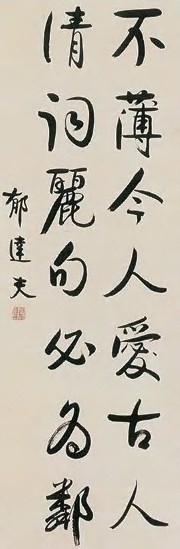 不薄今人愛古人
清詞麗句必為鄰
郁達夫